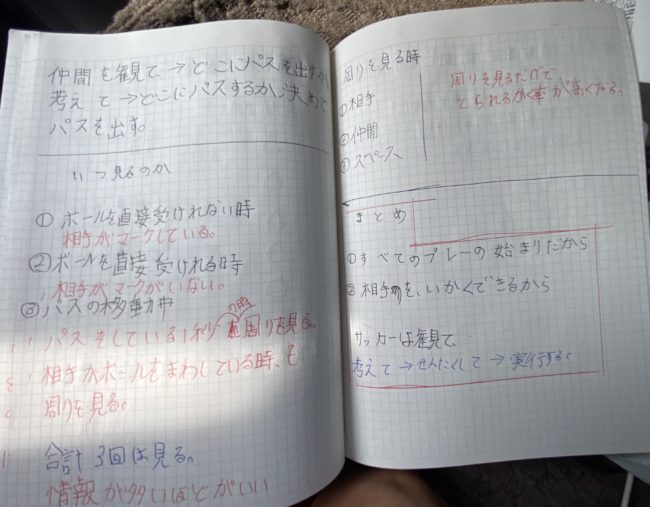 仲間を観て、→どこにパスを出すか
考えて→どこにパスするか決めて
パスを出す。
いつ見るのか
①ボールを直接受けれない時
相手がマークしている。
②ボールを直接受けれる時
相手がマークがいない。
③パスの移動中
パスをしている1秒の間周りを見る。
相手がボールをまわしている時、も
周りを見る。
合計3回は見る。
情報が多いほどがいい
周りを見る時
①相手
②仲間
③スペース
周りを見るだけで
とられるかく率が高くなる。
まとめ
①すべてのプレーの始まりだから
②相手を、いかくできるから
サッカーは観て、
考えて→せんたくして→実行する